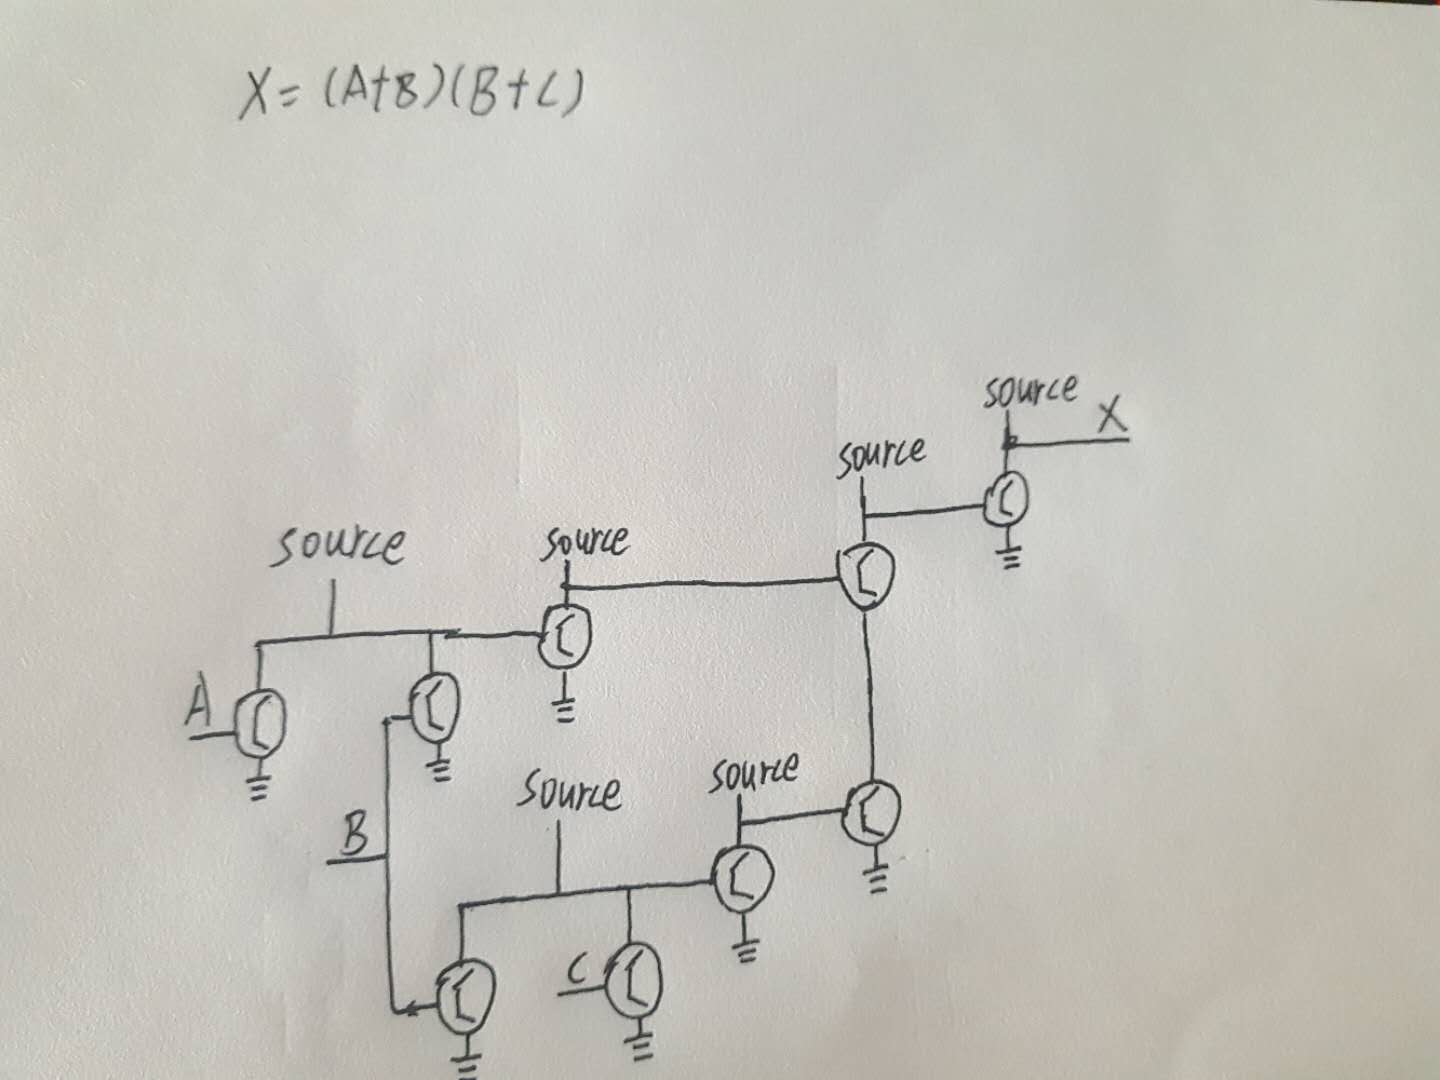 X = (A+B)(B+C)
source
X
source
source
source
A
source
source
B
C